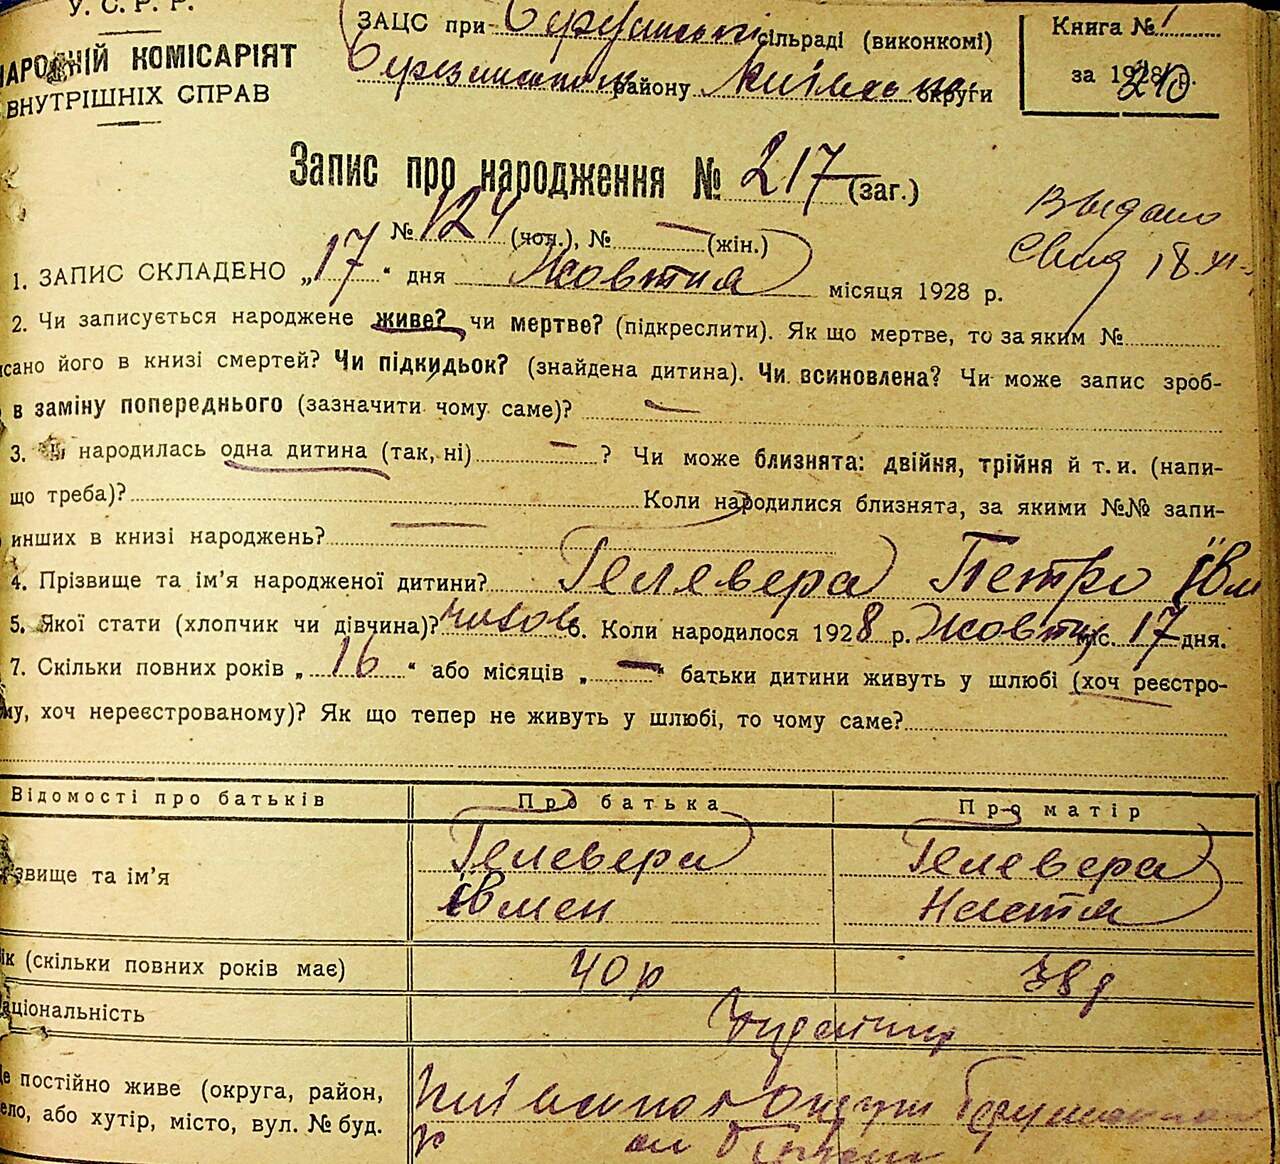 У. С. Р. Р.
НАРОДНІЙ КОМІСАРІЯТ
ВНУТРІШНІХ СПРАВ
ЗАЦС при сільраді (виконкомі)
району округи
Книга № 1
за 1928 р.
Запис про народження № 217 (заг.)
№ 124 (чол.), № — (жін.)
Выдано
Свид 18 XI
1. ЗАПИС СКЛАДЕНО „17“ дня Жовтня місяця 1928 р.
2. Чи записується народжене живе? чи мертве? (підкреслити). Як що мертве, то за яким №
сано його в книзі смертей? Чи підкидьок? (знайдена дитина). Чи всиновлена? Чи може запис зроб-
в заміну попереднього (зазначити чому саме)? —
3. народилась одна дитина (так, ні) — ? Чи може близнята: двійня, трійня й т. и. (напи-
що треба)? Коли народилися близнята, за якими №№ запи-
инших в книзі народжень? —
4. Прізвище та ім’я народженої дитини? Гелевера Петро Івм
5. Якої стати (хлопчик чи дівчина)? чолов 6. Коли народилося 1928 р. Жовтня міс. 17 дня.
7. Скільки повних років „16“ або місяців „—“ батьки дитини живуть у шлюбі (хоч реєстро-
му, хоч нереєстрованому)? Як що тепер не живуть у шлюбі, то чому саме?
Відомості про батьків Про батька Про матір
звище та ім’я Гелевера Гелевера
Івмен Настя
ік (скільки повних років має) 40 р 38 р
аціональність
е постійно живе (округа, район, Київської Округи
ело, або хутір, місто, вул. № буд.